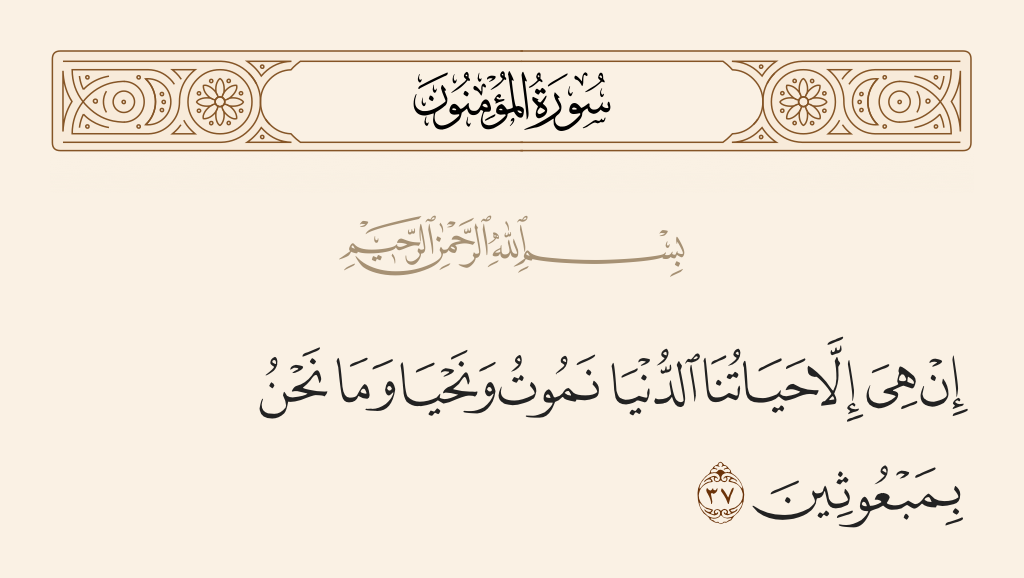 سُورَةُ المُؤْمِنُونَ
بِسْمِ ٱللَّهِ ٱلرَّحْمَٰنِ ٱلرَّحِيمِ
إِنْ هِىَ إِلَّا حَيَاتُنَا ٱلدُّنْيَا نَمُوتُ وَنَحْيَا وَمَا نَحْنُ
بِمَبْعُوثِينَ ٣٧